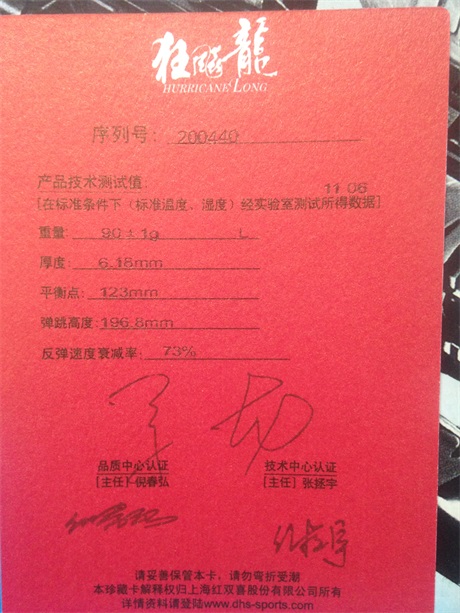 狂飚龍
HURRICANE LONG
序列号: 200440
产品技术测试值: 11 06
[在标准条件下(标准温度、湿度)经实验室测试所得数据]
重量: 90±1g L
厚度: 6.18mm
平衡点: 123mm
弹跳高度: 196.8mm
反弹速度衰减率: 73%
品质中心认证 技术中心认证
[主任] 倪春弘 [主任] 张拯宇
请妥善保管本卡,请勿弯折受潮
本珍藏卡解释权归上海红双喜股份有限公司所有
详情资料请登陆www.dhs-sports.com